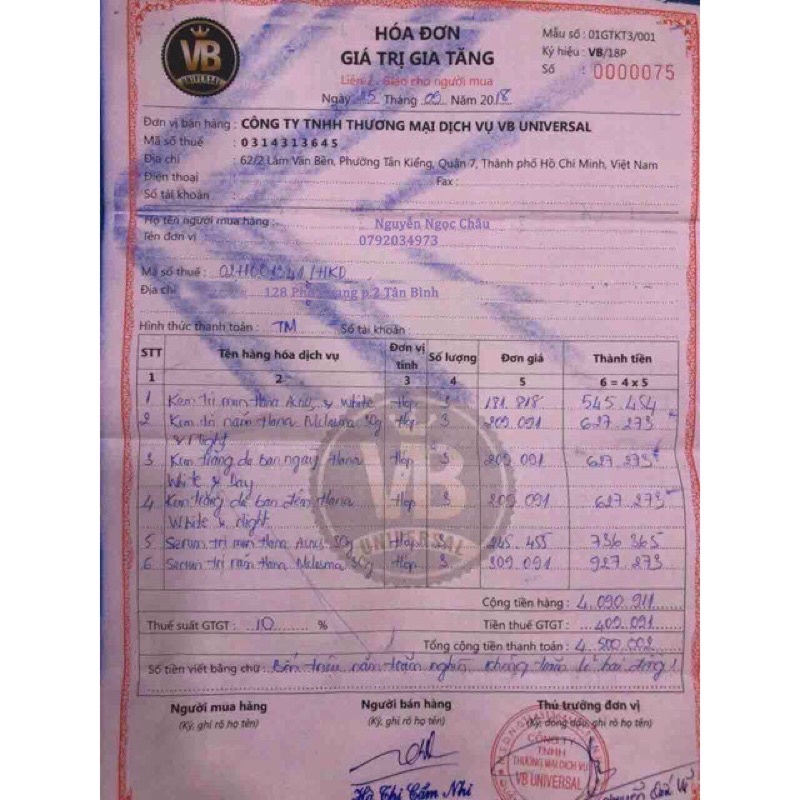 VB
UNIVERSAL
HÓA ĐƠN
GIÁ TRỊ GIA TĂNG
Liên 2 : Giao cho người mua
Ngày 25 Tháng 09 Năm 2018
Mẫu số : 01GTKT3/001
Ký hiệu : VB/18P
Số : 0000075
Đơn vị bán hàng : CÔNG TY TNHH THƯƠNG MẠI DỊCH VỤ VB UNIVERSAL
Mã số thuế : 0314313645
Địa chỉ : 62/2 Lâm Văn Bền, Phường Tân Kiểng, Quận 7, Thành phố Hồ Chí Minh, Việt Nam
Điện thoại : Fax :
Số tài khoản :
Họ tên người mua hàng : Nguyễn Ngọc Châu
Tên đơn vị 0792034973
Mã số thuế : /HKD
Địa chỉ 128 p.2 Tân Bình
Hình thức thanh toán : TM Số tài khoản :
STT Tên hàng hóa dịch vụ Đơn vị tính Số lượng Đơn giá Thành tiền
1 2 3 4 5 6 = 4 x 5
1 Kem trị mụn Hana & White Hộp 3 181.818 545.454
2 Kem trị nám Hana Melasma 30g Hộp 3 209.091 627.273
& Night
3 Kem trắng da ban ngày Hana Hộp 3 209.091 627.273
White & Day
4 Kem trắng da ban đêm Hana Hộp 3 209.091 627.273
White & Night
5 Serum trị mụn Hana 30g Hộp 3 245.455 736.365
6 Serum trị nám Hana Melasma 30g Hộp 3 309.091 927.273
VB
UNIVERSAL
Cộng tiền hàng : 4.090.911
Thuế suất GTGT : 10 % Tiền thuế GTGT : 409.091
Tổng cộng tiền thanh toán : 4.500.002
Số tiền viết bằng chữ : Bốn triệu năm trăm nghìn không trăm lẻ hai đồng!
Người mua hàng Người bán hàng Thủ trưởng đơn vị
(Ký, ghi rõ họ tên) (Ký, ghi rõ họ tên) (Ký đóng dấu, ghi rõ họ tên)
CÔNG TY
TNHH
THƯƠNG MẠI DỊCH VỤ
VB UNIVERSAL
Hà Thị Cẩm Nhi